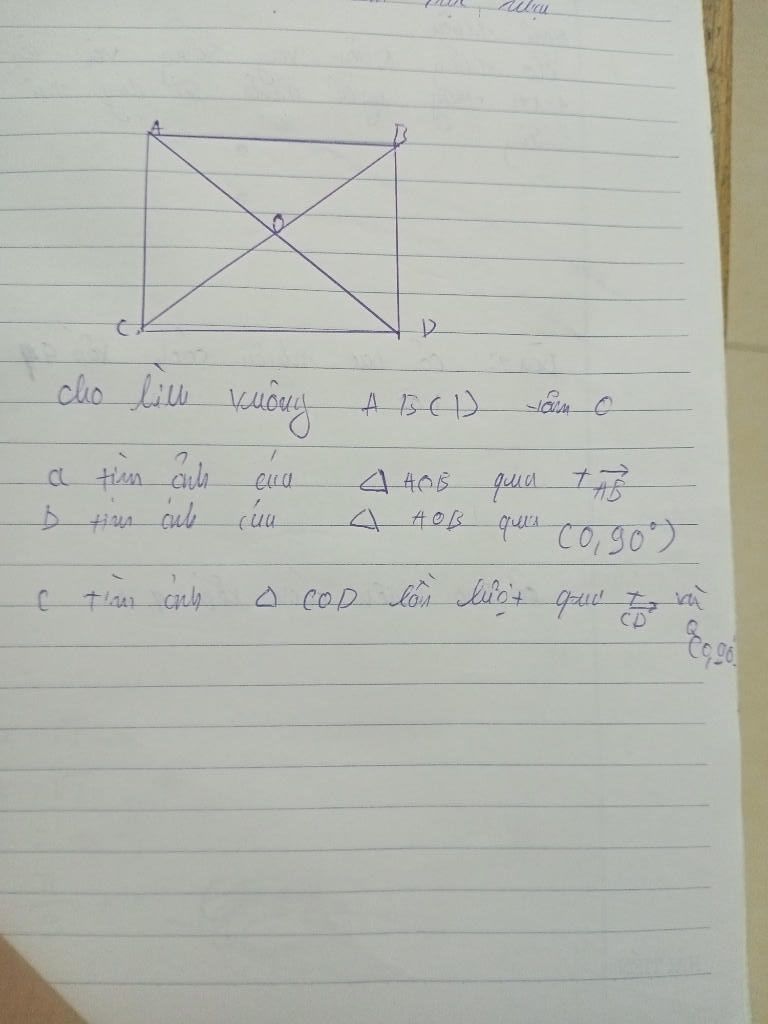 A
B
O
C
D
cho hình vuông ABCD tâm O
a tìm ảnh của △ AOB qua T AB
b tìm ảnh của △ AOB qua (O, 90°)
c tìm ảnh △ COD lần lượt qua T CD và
Q (O, 90